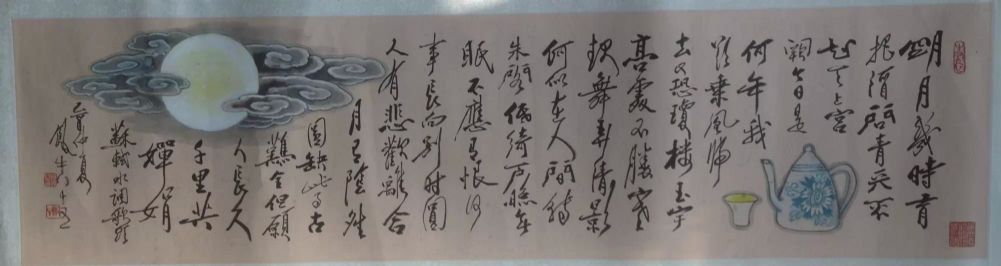 明月幾時有
把酒問青天不
知天上宮
闕今夕是
何年我
欲乘風歸
去又恐瓊樓玉宇
高處不勝寒
起舞弄清影
何似在人間轉
朱閣低綺戶照無
眠不應有恨何
事長向別時圓
人有悲歡離合
月有陰晴
圓缺此事古
難全但願
人長久
千里共
嬋娟
蘇軾水調歌頭
仲夏